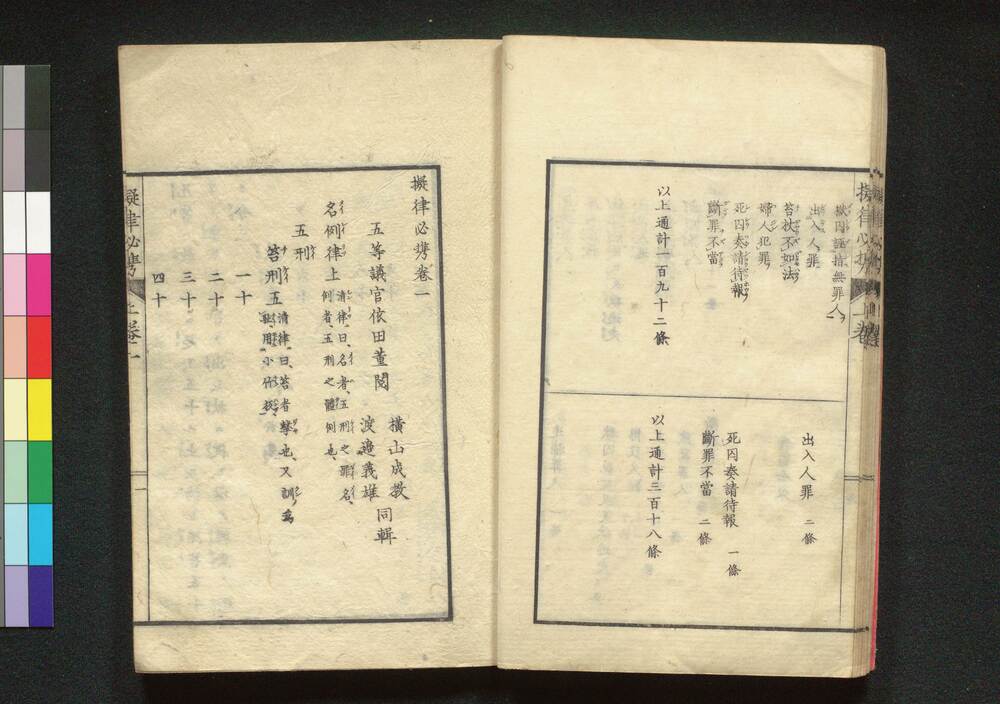 獄囚誣指無罪人
出入人罪
笞杖不如法
婦人犯罪
死囚奏請待報
斷罪不當
以上通計一百九十二條
出入人罪 二條
死囚奏請待報 一條
斷罪不當 二條
以上通計三百十八條
擬律必携卷一
五等議官依田董閱
橫山成教
渡邉義雄
同輯
名例律上 清律曰、名者、五刑之罪名、
例者、五刑之體例也、
五刑
笞刑五 清律曰、笞者擊也、又訓爲
一十
二十
三十
四十
擬律必携